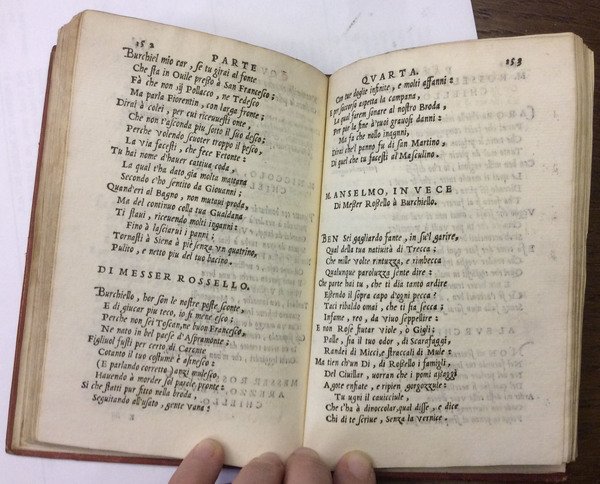 152
PARTE
Burchiel mio car, se tu girai al fonte
Che sta in Ouile presso à San Francesco;
Fà che non sij Pollacco, ne Tedesco
Ma parla Fiorentin, con larga fronte:
Dirai à colei, per cui riceuesti onte,
Che non t'asconda piu sotto il suo desco;
Perche volendo scuoter troppo il pesco,
La via facesti, che fece Fetonte:
Tu hai nome d'hauer cattiua coda,
La qual t'ha dato già molta mattana
Secondo c'ho sentito da Giouanni:
Quand'eri al Bagno, non mutaui proda,
Ma del continuo colla tua Gualdana
Ti staui, riceuendo molti inganni:
Fino à lasciarui i panni:
Tornasti à Siena à piè senza vn quatrino,
Pulito, e netto piu del tuo bacino.
DI MESSER ROSSELLO.
Burchiello, hor son le nostre poste sconte,
E di giucar piu teco, io fi
Perche non sei Toscan, ne buon Francesco,
Ne nato in bel paese d'Aspramonte:
Figliuol fusti per certo di Caronte
Cotanto il tuo costume è asinesco:
(E parlando corretto) anzi
Hauendo à morder sol parole pronte:
Si che statti pur fitto nella broda,
Seguitando all'usato, gente vana:
QVARTA.
153
Con tue doglie infinite, e molti affanni:
E per soccorso aspetta la campana,
La qual faren sonare al nostro Broda,
Per por la fine à tuoi grauosi danni:
Ma fa che nollo inganni,
Dirai che'l penno fu di san Martino,
Di quel che tu facesti al Masculino.
M. ANSELMO, IN VECE
Di Messer Rosello à Burchiello.
BEN Sei gagliardo fante, in su'l garire,
Qual della tua natiuità di Trecca:
Che mille volte rintuzza, e rimbecca
Qualunque paroluzza sente dire:
Che parte hai tu, che ti dia tanto ardire
Essendo il sopra capo d'ogni pecca?
Taci ribaldo omai, che ti fia secca;
Infame, reo, da viuo seppellire:
E non Rose futar viole, o Gigli:
Palle, fia il tuo odor, di Scarafaggi
Randei di Micci, e straccali di Mule:
Ma tien ch'un Dì, di Rosello i famigli,
Del Ciuffar, uorran che i pomi
Agote enfiate, e ripien gorgozzule:
Tu ugni il cauicciule,
Che t'hà à dinoccolar, qual disse, e dice
Chi di te scriue, Senza la vernice.